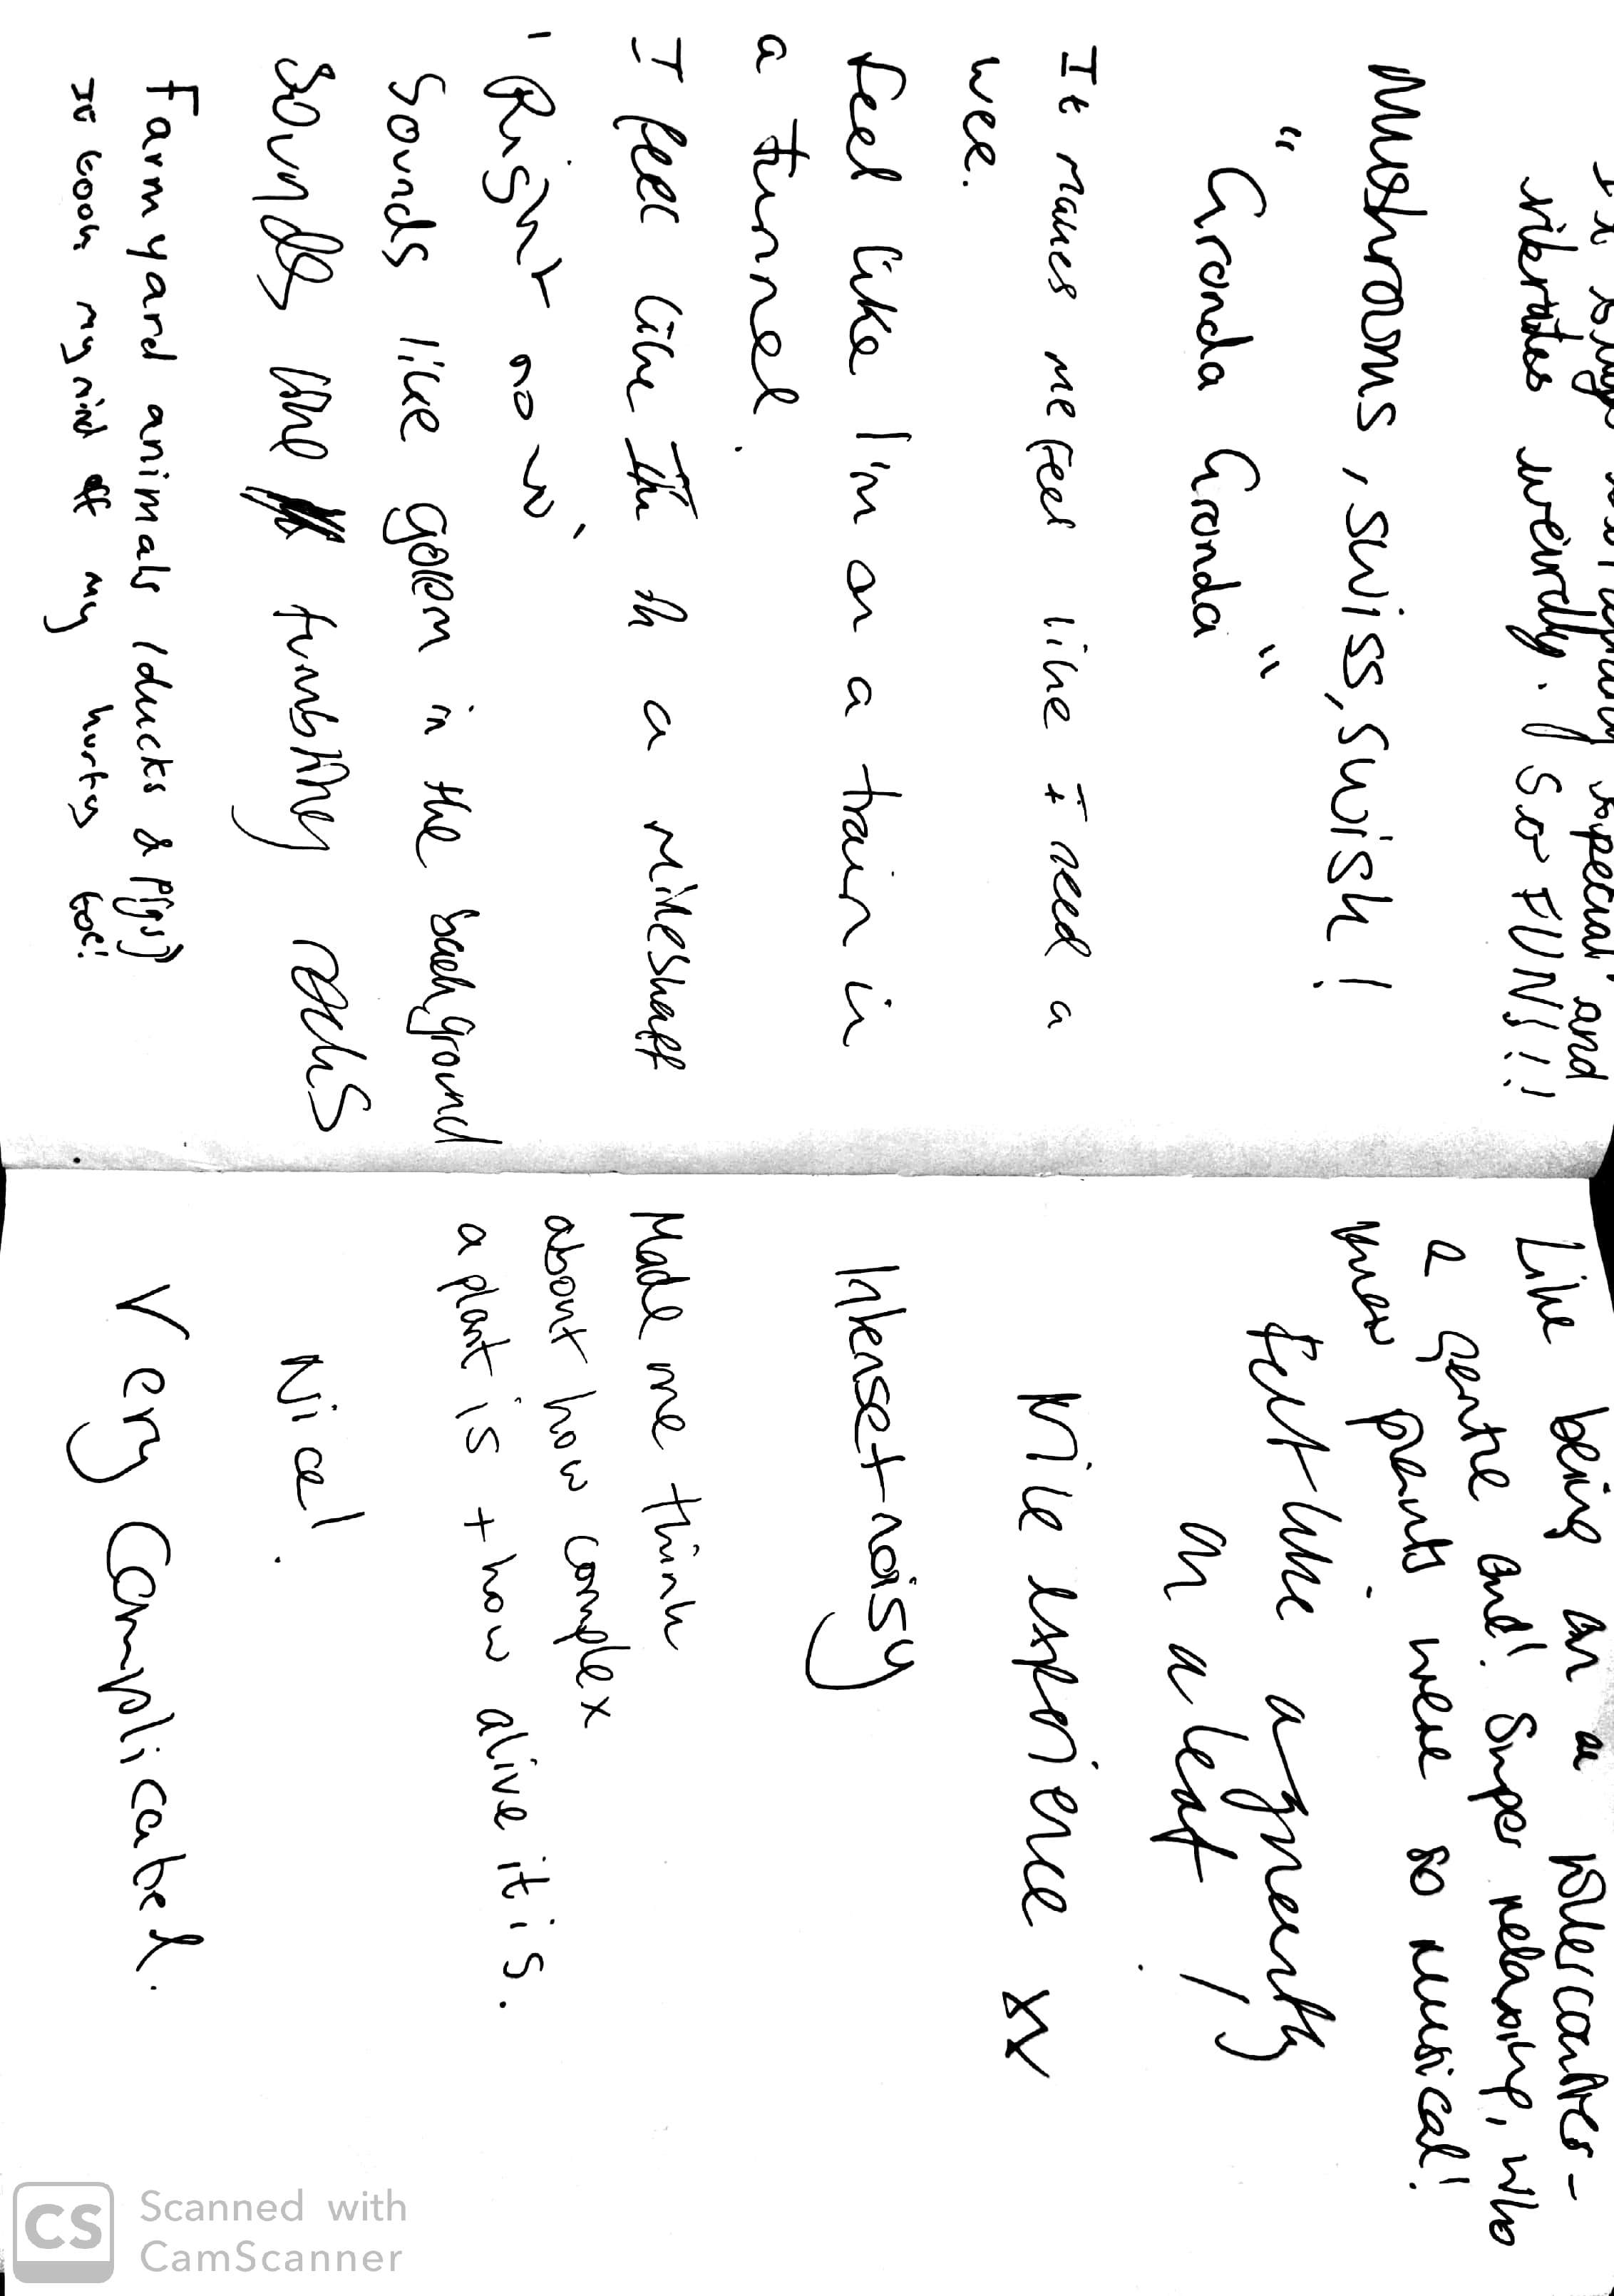 vibrates weirdly. So FUN!!!
special and
Mushrooms, swiss, swish!
"Gronda Gronda"
It makes me feel like I need a
wee.
feel like I'm on a train in
a tunnel.
I feel like I'm in a mineshaft
'Right now'
Sounds like golem in the background
Sounds like tumbling rocks
Farmyard animals (ducks & pigs)
It took my mind off my hurty toe!
Like being on a rollercoaster -
a gentle one! Super relaxing, who
knew plants were so musical!
Felt like a greenfly
on a leaf!
Nice experience xx
Intense + noisy
Made me think
about how complex
a plant is + how alive it is.
Nice!
Very Complicated.
Scanned with
CamScanner
CS